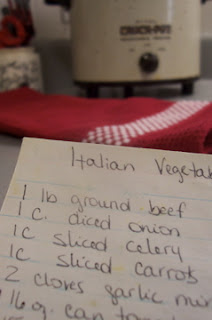 CROCK-POT
Italian Vegetab
1 lb ground beef
1 c. diced onion
1c sliced celery
1c sliced carrots
2 cloves garlic min
1 16 g. can tom